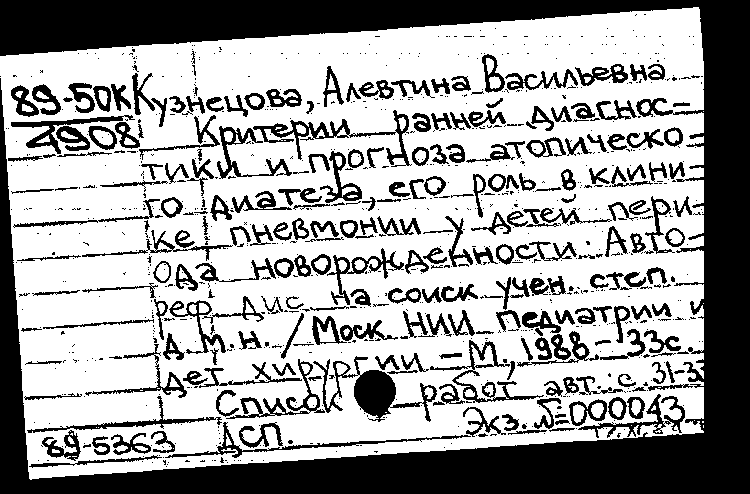 89-50К Кузнецова, Алевтина Васильевна.
4908 Критерии ранней диагнос=
тики и прогноза атопическо=
го диатеза, его роль в клини-
ке пневмонии у детей пери-
ода новорожденности. Авто-
реф. дис на соиск учен. степ.
д.м.н. / Моск. НИИ педиатрии и
дет. хирургии. - М., 1988. - 33с.
Список работ авт.: с. 31-33
89-5363 ДСП. Экз. №=000043